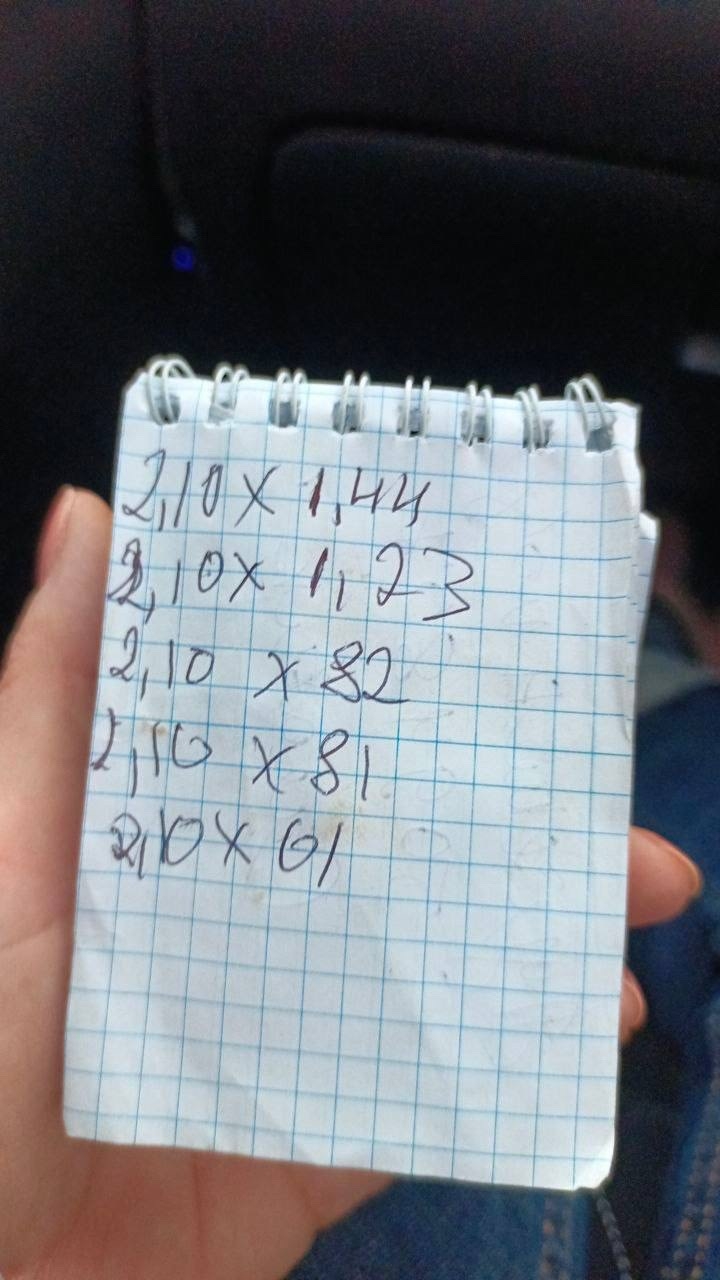 2,10 x 1,44
2,10 x 1,23
2,10 x 82
2,10 x 81
2,10 x 61